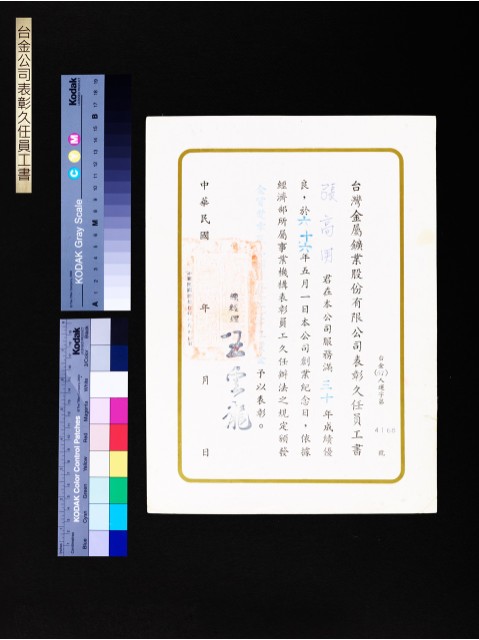 台金公司表彰久任員工書
台灣金屬鑛業股份有限公司表彰久任員工書
台金(67)人連字第 4166 號
張高明 君在本公司服務滿 三十 年成績優
良，於六十六年五月一日本公司創業紀念日，依據
經濟部所屬事業機構表彰員工久任辦法之規定頒發
予以表彰。
總經理
中華民國 年 月 日
Kodak
KODAK Gray Scale
C Y M
A 1 2 3 4 5 6 M 8 9 10 11 12 13 14 15 B 17 18 19
Kodak
KODAK Color Control Patches
Blue Cyan Green Yellow Red Magenta White 3/Color Black